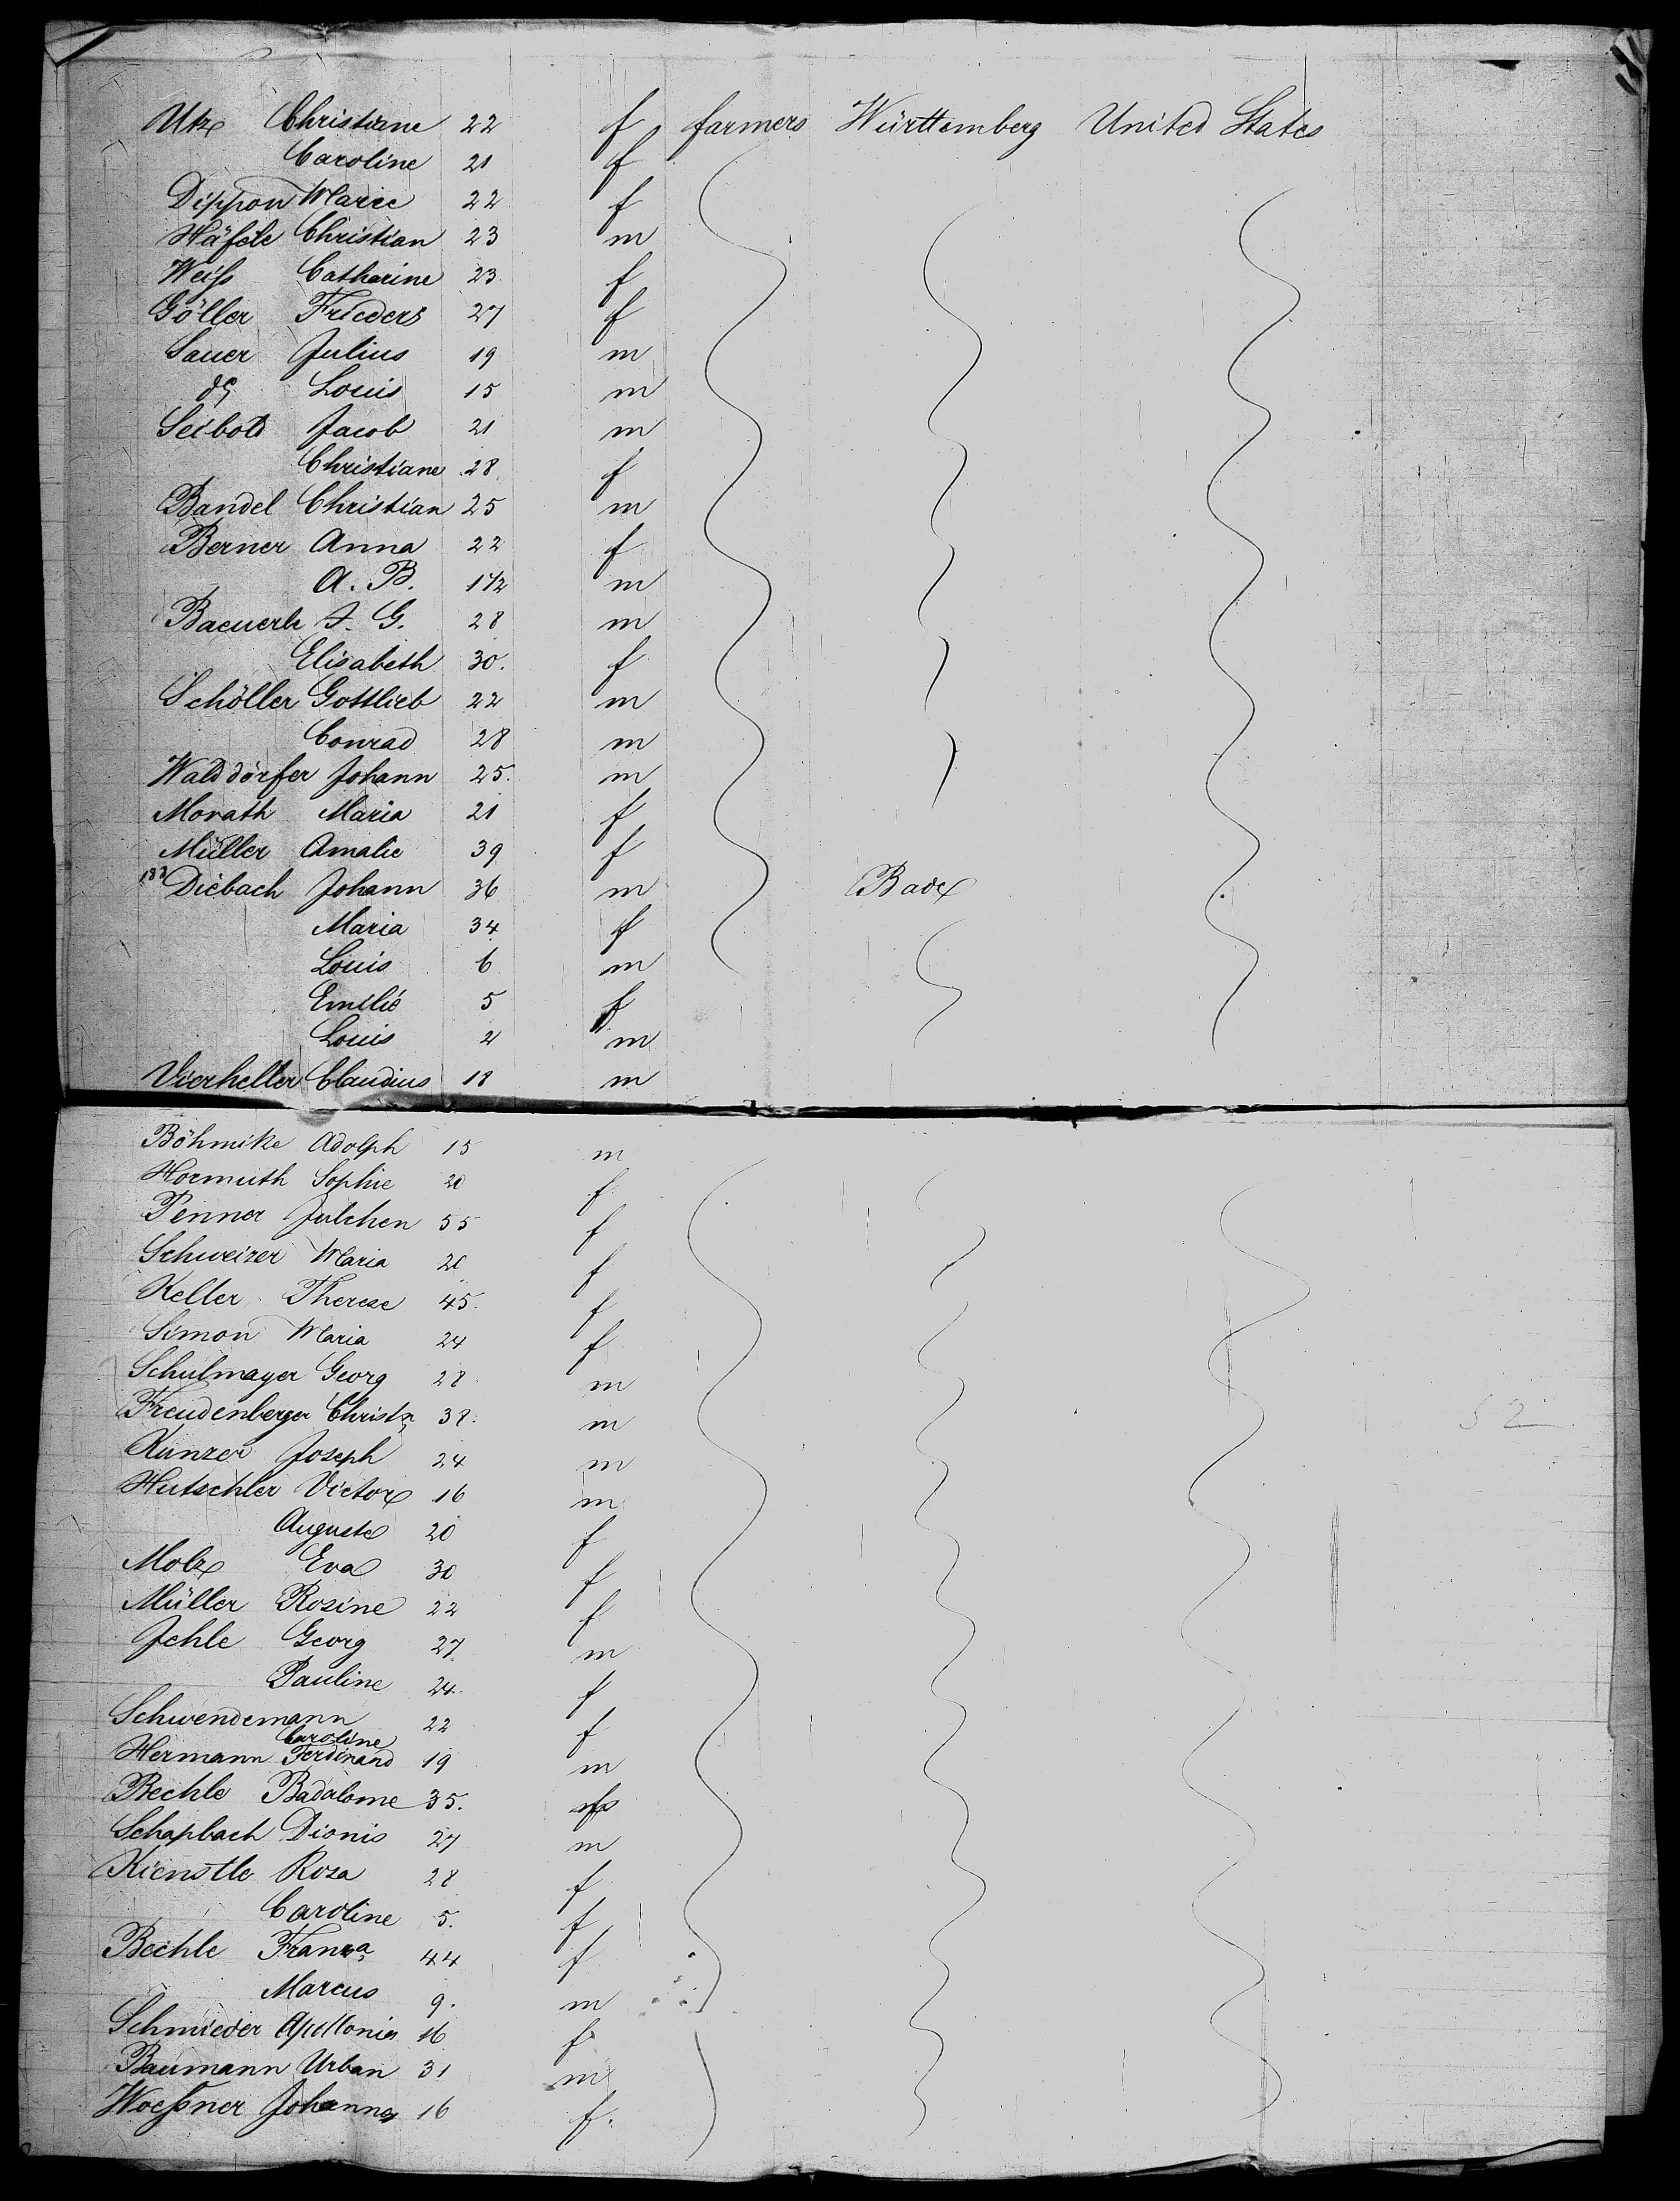 Utz Christiane 22 f farmers Württemberg United States
Caroline 21 f
Dippon Marie 22 f
Häfele Christian 23 m
Weiß Catharine 23 f
Göller Frieders 27 f
Sauer Julius 19 m
do Louis 15 m
Seibold Jacob 21 m
Christiane 28 f
Bandel Christian 25 m
Berner Anna 22 f
A. B. 1 1/2 m
Baeuerle J. G. 28 m
Elisabeth 30. f
Schöller Gottlieb 22 m
Conrad 28 m
Walddörfer Johann 25. m
Morath Maria 21 f
Müller Amalie 39 f
Diebach Johann 36 m Baden
Maria 34 f
Louis 6 m
Emilie 5 f
Louis 2 m
Vierheller Claudius 18 m
Böhmike Adolph 15 m
Hormuth Sophie 20 f
Penner Julchen 55 f
Schweizer Maria 20 f
Keller Therese 45. f
Simon Maria 24 f
Schulmayer Georg 28 m
Freudenberger Christn 38. m 52
Kunzer Joseph 24 m
Hutschler Victor 16 m
Auguste 20 f
Molz Eva 30 f
Müller Rosine 22 f
Jehle Georg 27 m
Pauline 24 f
Schwendemann Caroline 22 f
Hermann Ferdinand 19 m
Bechle Badalome 35.
Schapbach Dionis 27 m
Kienstle Rosa 28 f
Caroline 5. f
Bechle Franza 44 f
Marcus 9. m
Schmieder Apollonia 16 f.
Baumann Urban 31 m
Woeßner Johannes 16 f.